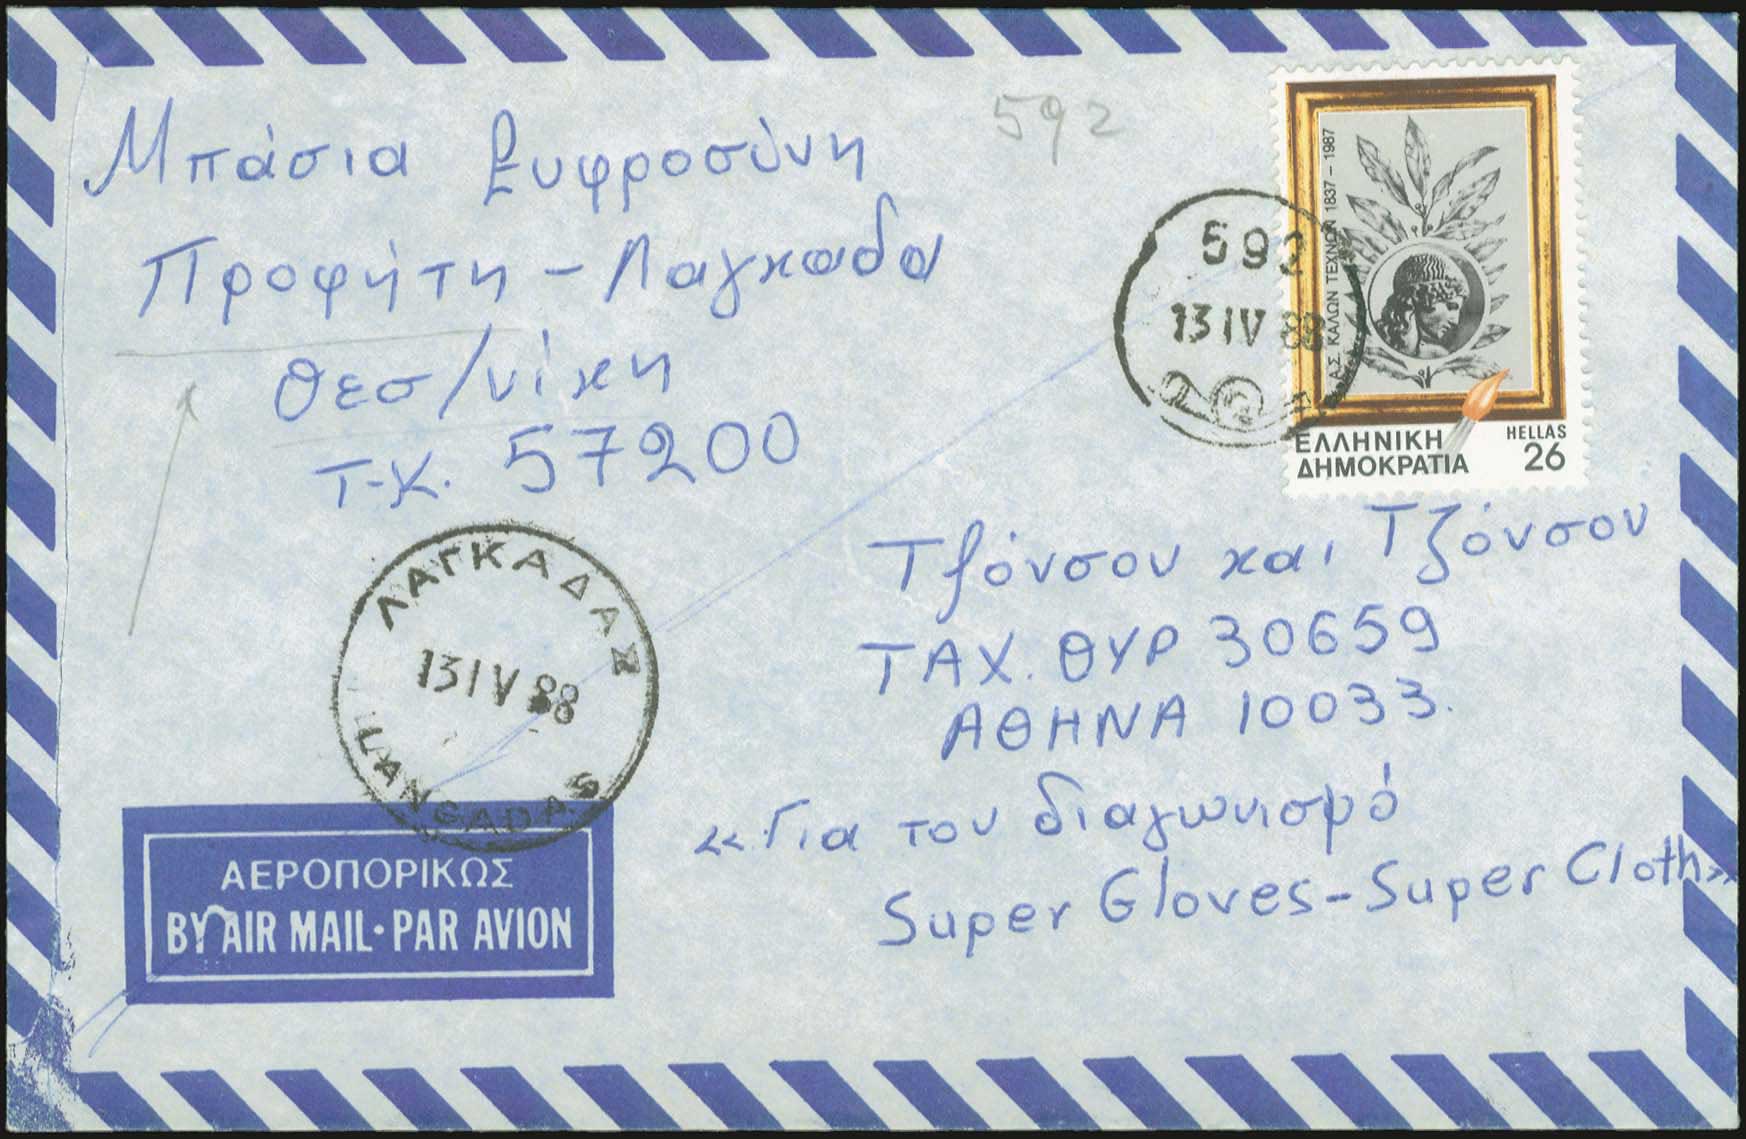 Μπάσια Ευφροσύνη
Προφήτη - Λαγκαδα
Θεσ/νίκη
Τ.Κ. 57200
592
592
13 IV 88
Α.Σ. ΚΑΛΩΝ ΤΕΧΝΩΝ 1837 - 1987
ΕΛΛΗΝΙΚΗ
ΔΗΜΟΚΡΑΤΙΑ
HELLAS
26
ΛΑΓΚΑΔΑΣ
13 IV 88
LANGADAS
Τζόνσον και Τζόνσον
ΤΑΧ. ΘΥΡ 30659
ΑΘΗΝΑ 10033.
«Για τον διαγωνισμό
Super Gloves-Super Cloth»
ΑΕΡΟΠΟΡΙΚΩΣ
BY AIR MAIL • PAR AVION